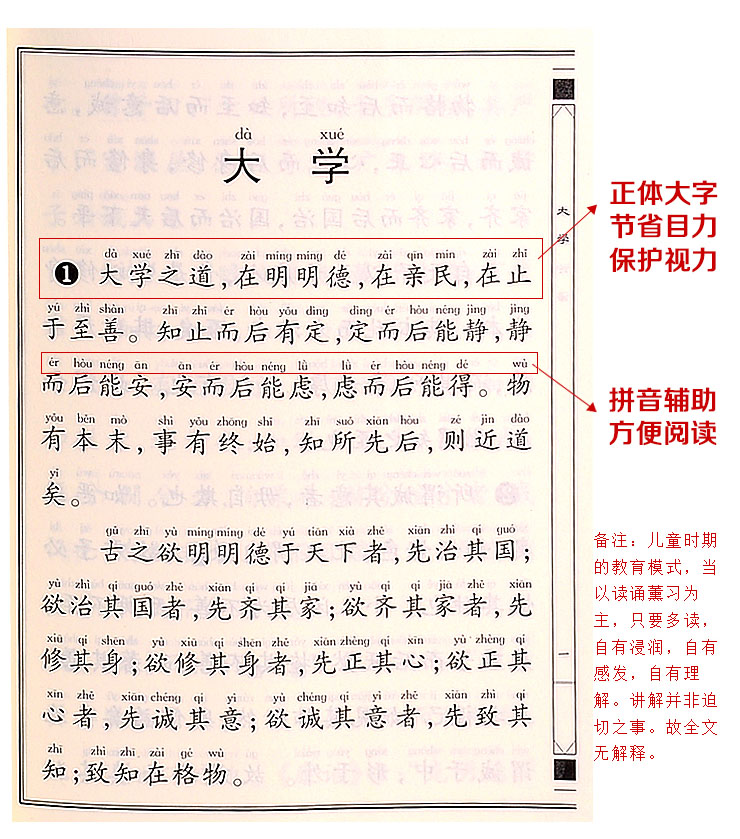 dà xué
大 学
dà xué zhī dào zài míng míng dé zài qīn mín zài zhǐ
❶ 大学之道,在明明德,在亲民,在止
yú zhì shàn zhī zhǐ ér hòu yǒu dìng dìng ér hòu néng jìng jìng
于至善。知止而后有定,定而后能静,静
ér hòu néng ān ān ér hòu néng lǜ lǜ ér hòu néng dé wù
而后能安,安而后能虑,虑而后能得。物
yǒu běn mò shì yǒu zhōng shǐ zhī suǒ xiān hòu zé jìn dào
有本末,事有终始,知所先后,则近道
yǐ
矣。
gǔ zhī yù míng míng dé yú tiān xià zhě xiān zhì qí guó
古之欲明明德于天下者,先治其国;
yù zhì qí guó zhě xiān qí qí jiā yù qí qí jiā zhě xiān
欲治其国者,先齐其家;欲齐其家者,先
xiū qí shēn yù xiū qí shēn zhě xiān zhèng qí xīn yù zhèng qí
修其身;欲修其身者,先正其心;欲正其
xīn zhě xiān chéng qí yì yù chéng qí yì zhě xiān zhì qí
心者,先诚其意;欲诚其意者,先致其
zhī zhì zhī zài gé wù
知;致知在格物。
大学
一
正体大字
节省目力
保护视力
拼音辅助
方便阅读
备注：儿童时期
的教育模式，当
以读诵薰习为
主，只要多读，
自有浸润，自有
感发，自有理
解。讲解并非迫
切之事。故全文
无解释。